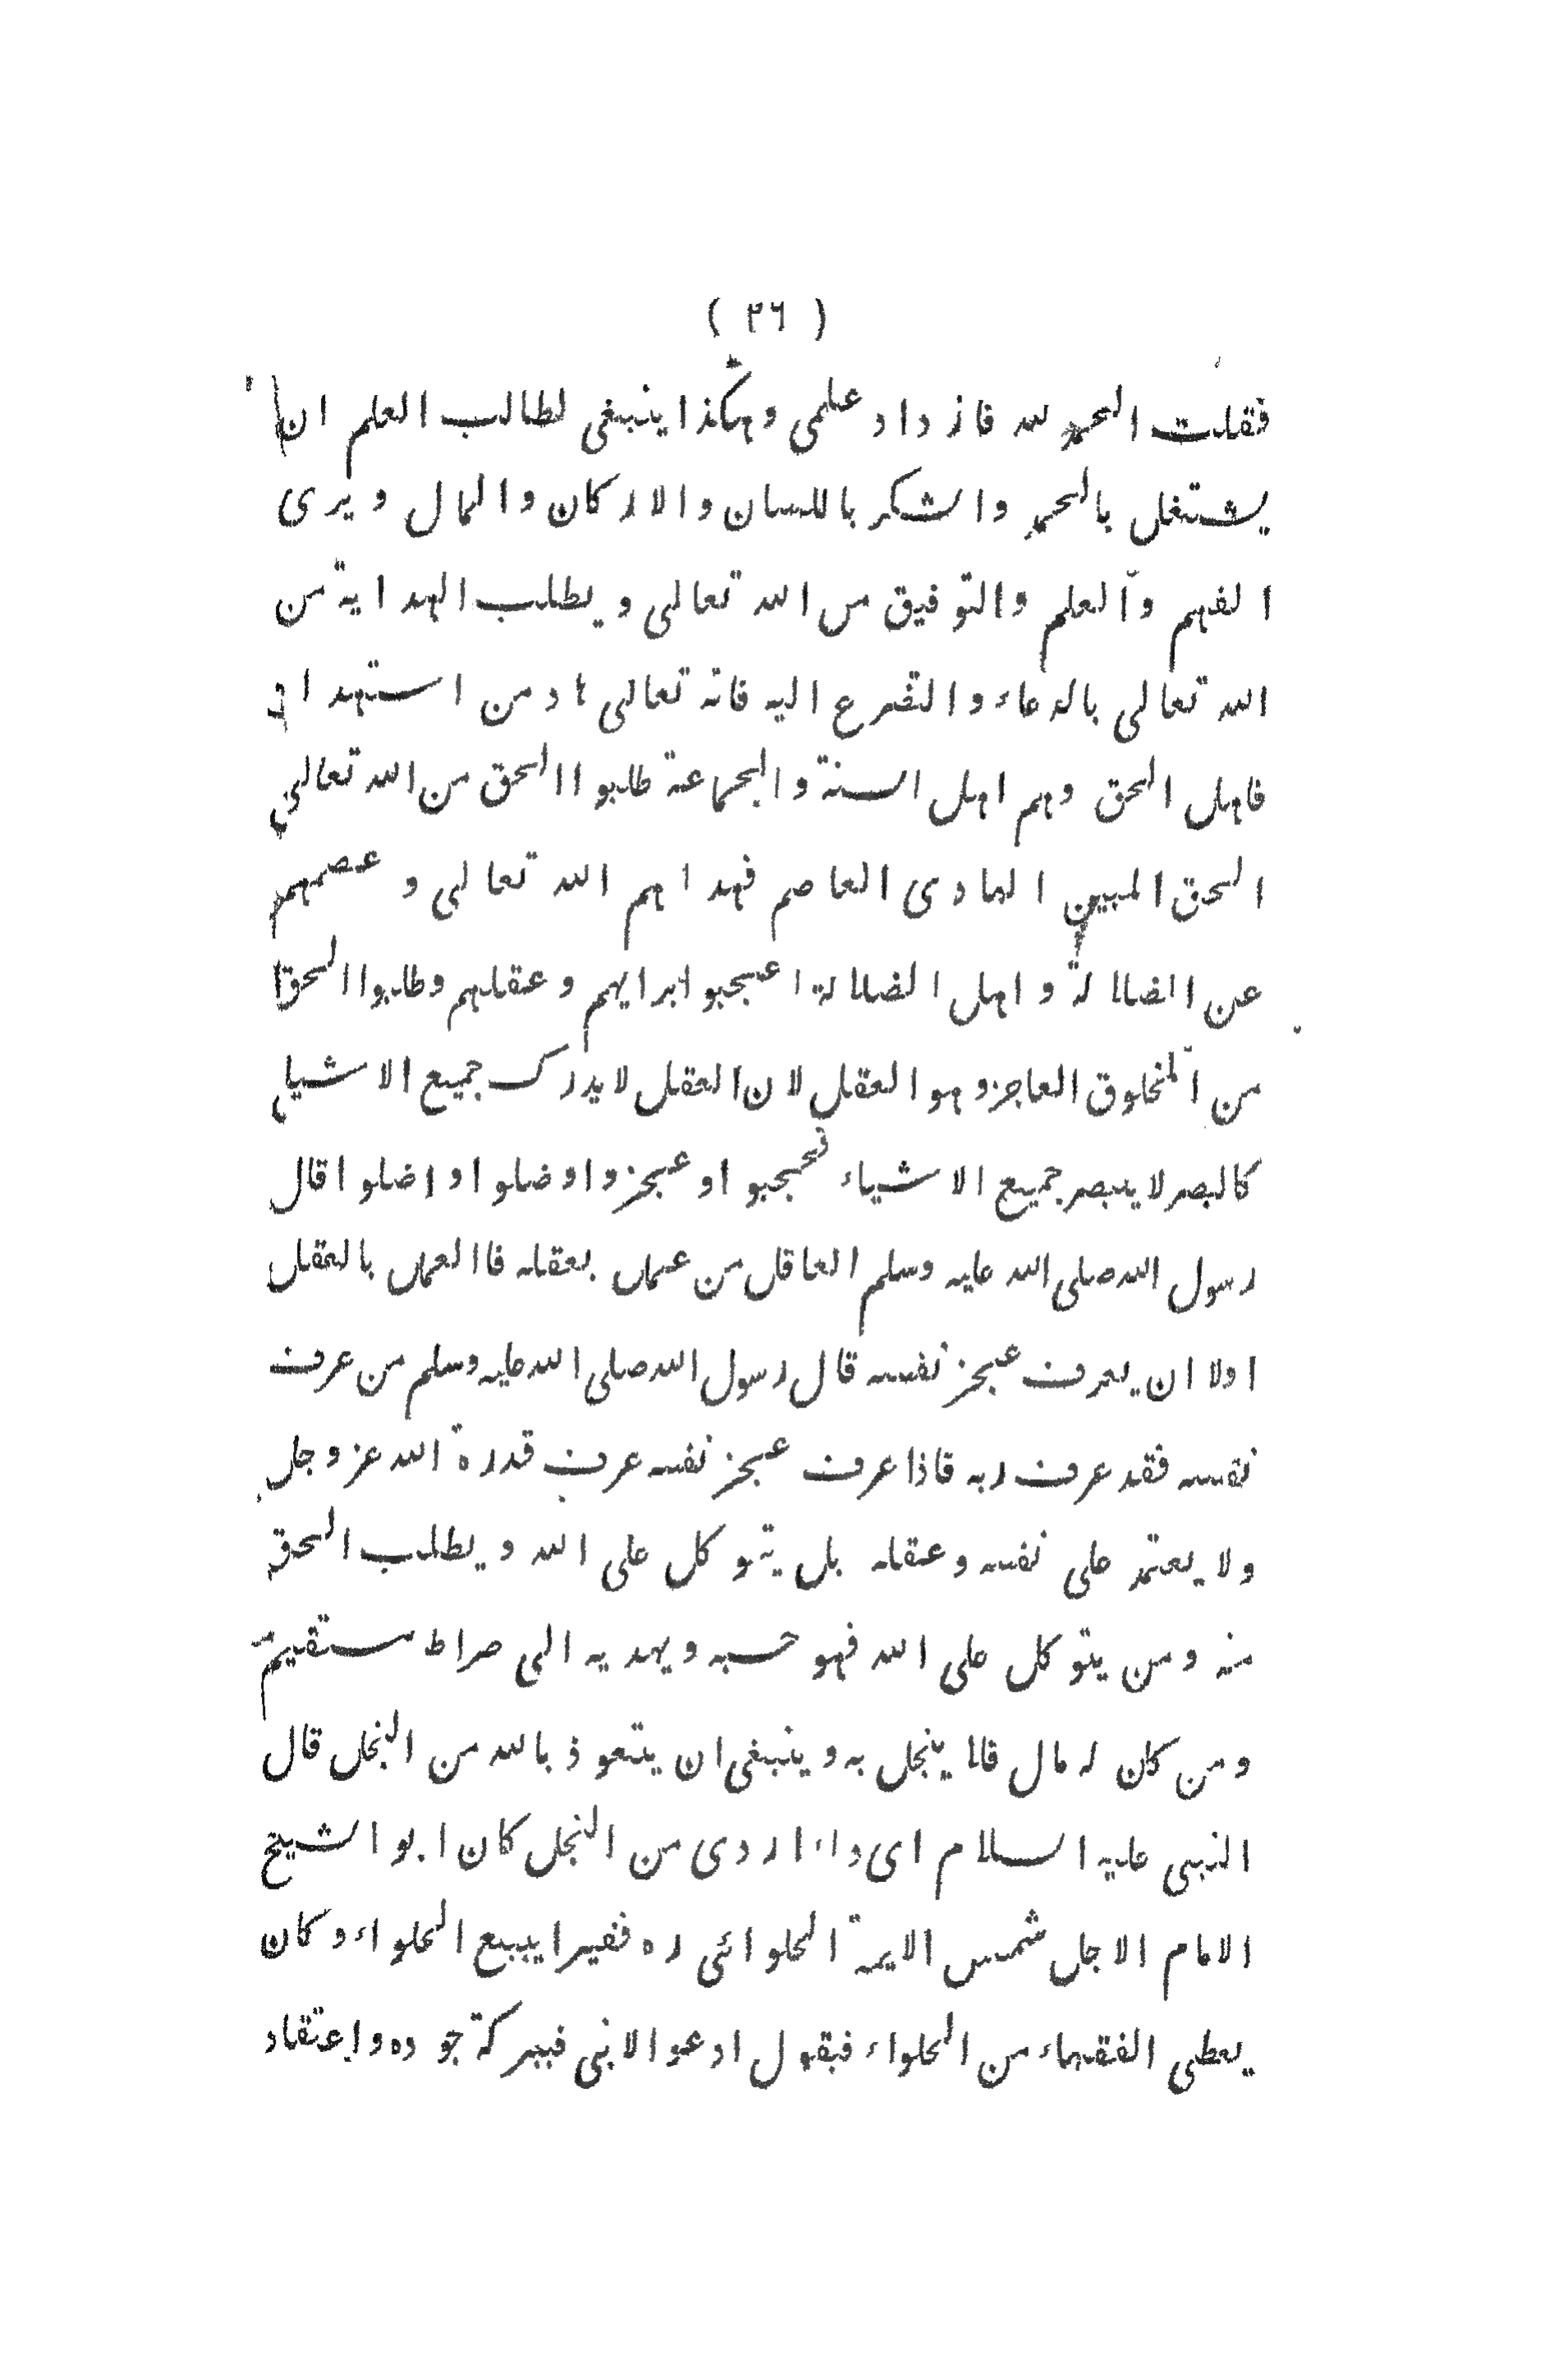 ( ٣٦ )
فقلت الحمد لله فازداد علمي وهكذا ينبغي لطالب العلم ان
يشتغل بالحمد والشكر باللسان والاركان والمال ويرى
الفهم والعلم والتوفيق من الله تعالى ويطلب الهداية من
الله تعالى بالدعاء والتضرع اليه فانه تعالى هاد من استهداه
فاهل الحق وهم اهل السنة والجماعة طلبوا الحق من الله تعالى
الحق المبين الهادى العاصم فهداهم الله تعالى وعصمهم
عن الضلالة واهل الضلالة اعجبوا برايهم وعقلهم وطلبوا الحق
من المخلوق العاجز وهو العقل لان العقل لايدرك جميع الاشياء
كالبصر لا يبصر جميع الاشياء فحجبوا وعجزوا وضلوا واضلوا قال
رسول الله صلى الله عليه وسلم العاقل من عمل بعقله فاالعمل بالعقل
اولا ان يعرف عجز نفسه قال رسول الله صلى الله عليه وسلم من عرف
نفسه فقد عرف ربه فاذا عرف عجز نفسه عرف قدرة الله عز وجل
ولا يعتمد على نفسه وعقله بل يتوكل على الله ويطلب الحق
منه ومن يتوكل على الله فهو حسبه ويهديه الى صراط مستقيم
ومن كان له مال فلا يبخل به وينبغي ان يتعوذ بالله من البخل قال
النبى عليه السلام اى داء اردى من البخل كان ابو الشيخ
الامام الاجل شمس الايمة الحلوائى ره فقيرا يبيع الحلواء وكان
يعطى الفقهاء من الحلواء فيقول ادعوا لابنى فببركة جوده واعتقاد